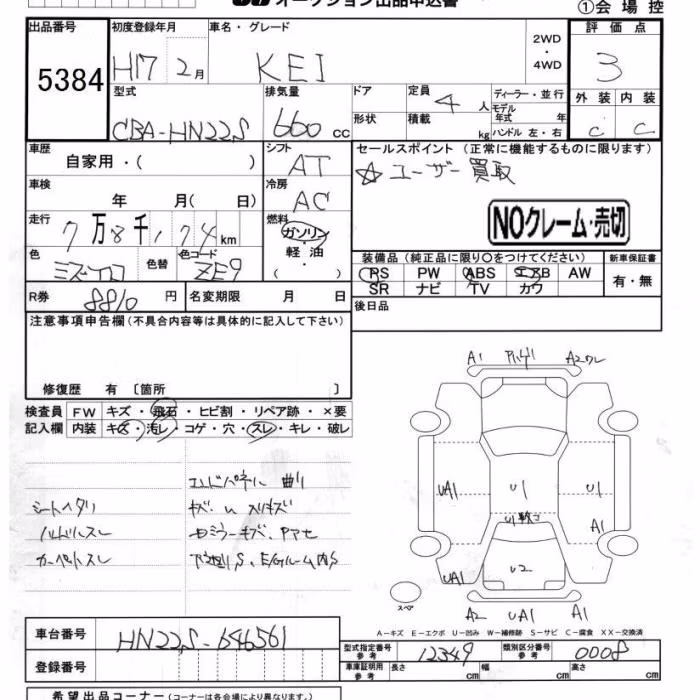 オークション出品申込書 ①会場控
出品番号 初度登録年月 車名・グレード 2WD・4WD 評価点
5384 H17 2月 KEI 3
型式 排気量 ドア 定員 ディーラー・並行 外装 内装
CBA-HN22S 660 cc 4人 モデル年式 年 C C
形状 積載 kg ハンドル 左・右
車歴 シフト セールスポイント(正常に機能するものに限ります)
自家用・( ) AT ☆ユーザー買取
車検 冷房
年 月( 日) AC
走行 燃料 NOクレーム・売切
7万8千174km ガソリン・軽油
色 色替 色コード 装備品(純正品に限り○をつけてください) 新車保証書
ZE9 PS PW ABS エアB AW 有・無
SR ナビ TV カワ
R券 8810円 名変期限 月 日 後日品
注意事項申告欄(不具合内容等は具体的に記入して下さい)
修復歴 有 〔箇所 〕
検査員 FW キズ・飛石・ヒビ割・リペア跡・×要
記入欄 内装 キズ・汚レ・コゲ・穴・スレ・キレ・破レ
A1 A2
コンドパネル 曲リ
シートヘタリ キズ U スリキズ
ハンドルスレ
カーペットスレ 下廻リS、E/Gルーム内S
UA1 U1 U1
A1
UA1 U2
スペア
A2 UA1 A1
A-キズ E-エクボ U-凹み W-補修跡 S-サビ C-腐食 XX-交換済
車台番号 HN22S-646561 型式指定番号 参考 12349 類別区分番号 参考 0008
登録番号 車庫証明用 参考 長さ cm 幅 cm 高さ cm
希望出品コーナー(コーナーは各会場により異なります。)